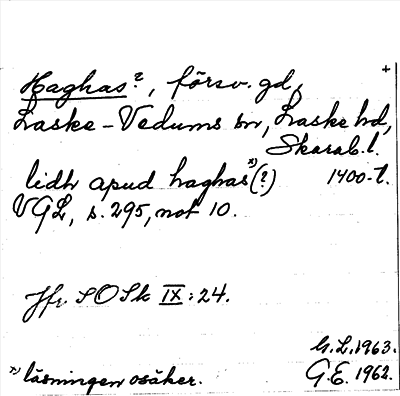 +
Haghas?, försv. gd,
Laske-Vedums sn, Laske hd,
Skarab.l.
lidh apud haghas *) (?) 1400-t.
VGL, s. 295, not 10.
Jfr. SOSk IX: 24.
G.L. 1963.
*) läsningen osäker. G.E. 1962.